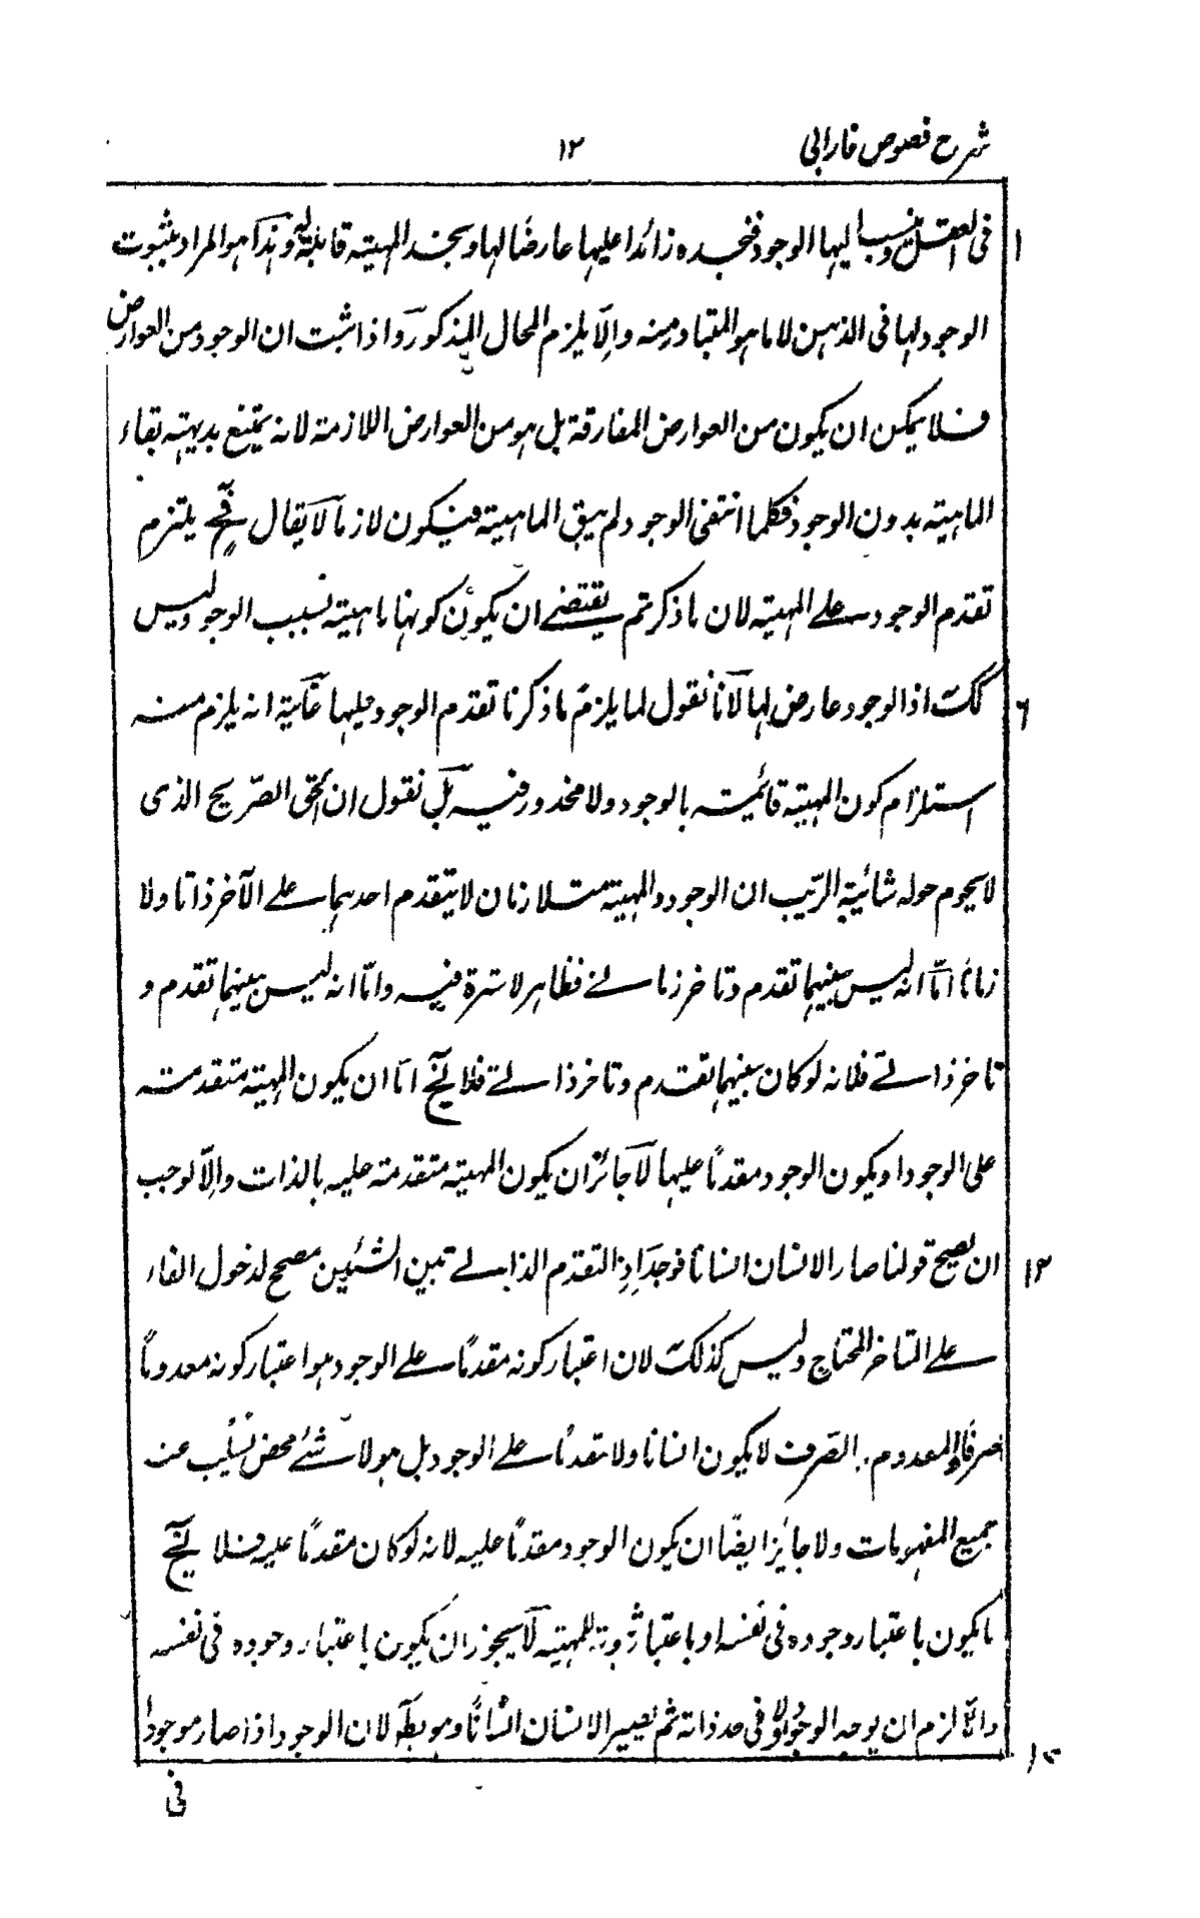 شرح فصوص فارابی
١٢
١ فى العقل و ينسب اليها الوجود فنجده زائدا عليها عارضا لها و نجد المهية قابلة له و هذا هو المراد بثبوت
الوجود لها فى الذهن لا ما هو المتبادر منه و الّا يلزم المحال المذكور و اذا ثبت ان الوجود من العوارض
فلا يمكن ان يكون من العوارض المفارقة بل هو من العوارض اللازمة لانه يمتنع بديهته بقاء
الماهية بدون الوجود فكلما انتفى الوجود لم يبق الماهية فيكون لازماً لا يقال فح يلتزم
تقدم الوجود على المهية لان ما ذكرتم يقتضى ان يكون كونها ماهية بسبب الوجود ليس
٦ كك اذ الوجود عارض لها لانا نقول لما يلزم ما ذكرنا تقدم الوجود عليها غاية انه يلزم منه
استلزام كون المهية قائمة بالوجود و لا محذور فيه بل نقول ان الحق الصّريح الذى
لا يحوم حوله شائبة الرّيب ان الوجود و المهية متلازمان لا يتقدم احدهما على الآخر ذاتا و لا
زمانا امّا انه ليس بينهما تقدم و تاخر زمانى فظاهر لا سترة فيه و امّا انه ليس بينهما تقدم و
تاخر ذاتى فلانه لو كان بينهما تقدم و تاخر ذاتى فلا يخ امّا ان يكون المهية متقدمة
على الوجود او يكون الوجود مقدماً عليها لا جائز ان يكون المهية متقدمة عليه بالذات و الّا لوجب
١٢ ان يصح قولنا صار الانسان انسانا فوجد اذ التقدم الذاتى بين الشيئين مصحح لدخول الفاء
على المتاخر المحتاج و ليس كذلك لان اعتبار كونه مقدماً على الوجود هو اعتبار كونه معدوماً
صرفا و المعدوم الصّرف لا يكون انسانا و لا مقدماً على الوجود بل هو لا شئ محض يسلب عنه
جميع المفهومات و لا جائز ايضاً ان يكون الوجود مقدماً عليه لانه لو كان مقدماً عليه فلا يخ
ما يكون باعتبار وجوده فى نفسه او باعتبار ثبوته للمهية لا يجوز ان يكون باعتبار وجوده فى نفسه
و الّا لزم ان يوجد الوجود اولا فى حد ذاته ثم يصير الانسان انساناً و هو بط لان الوجود اذا صار موجوداً
١٥
فى